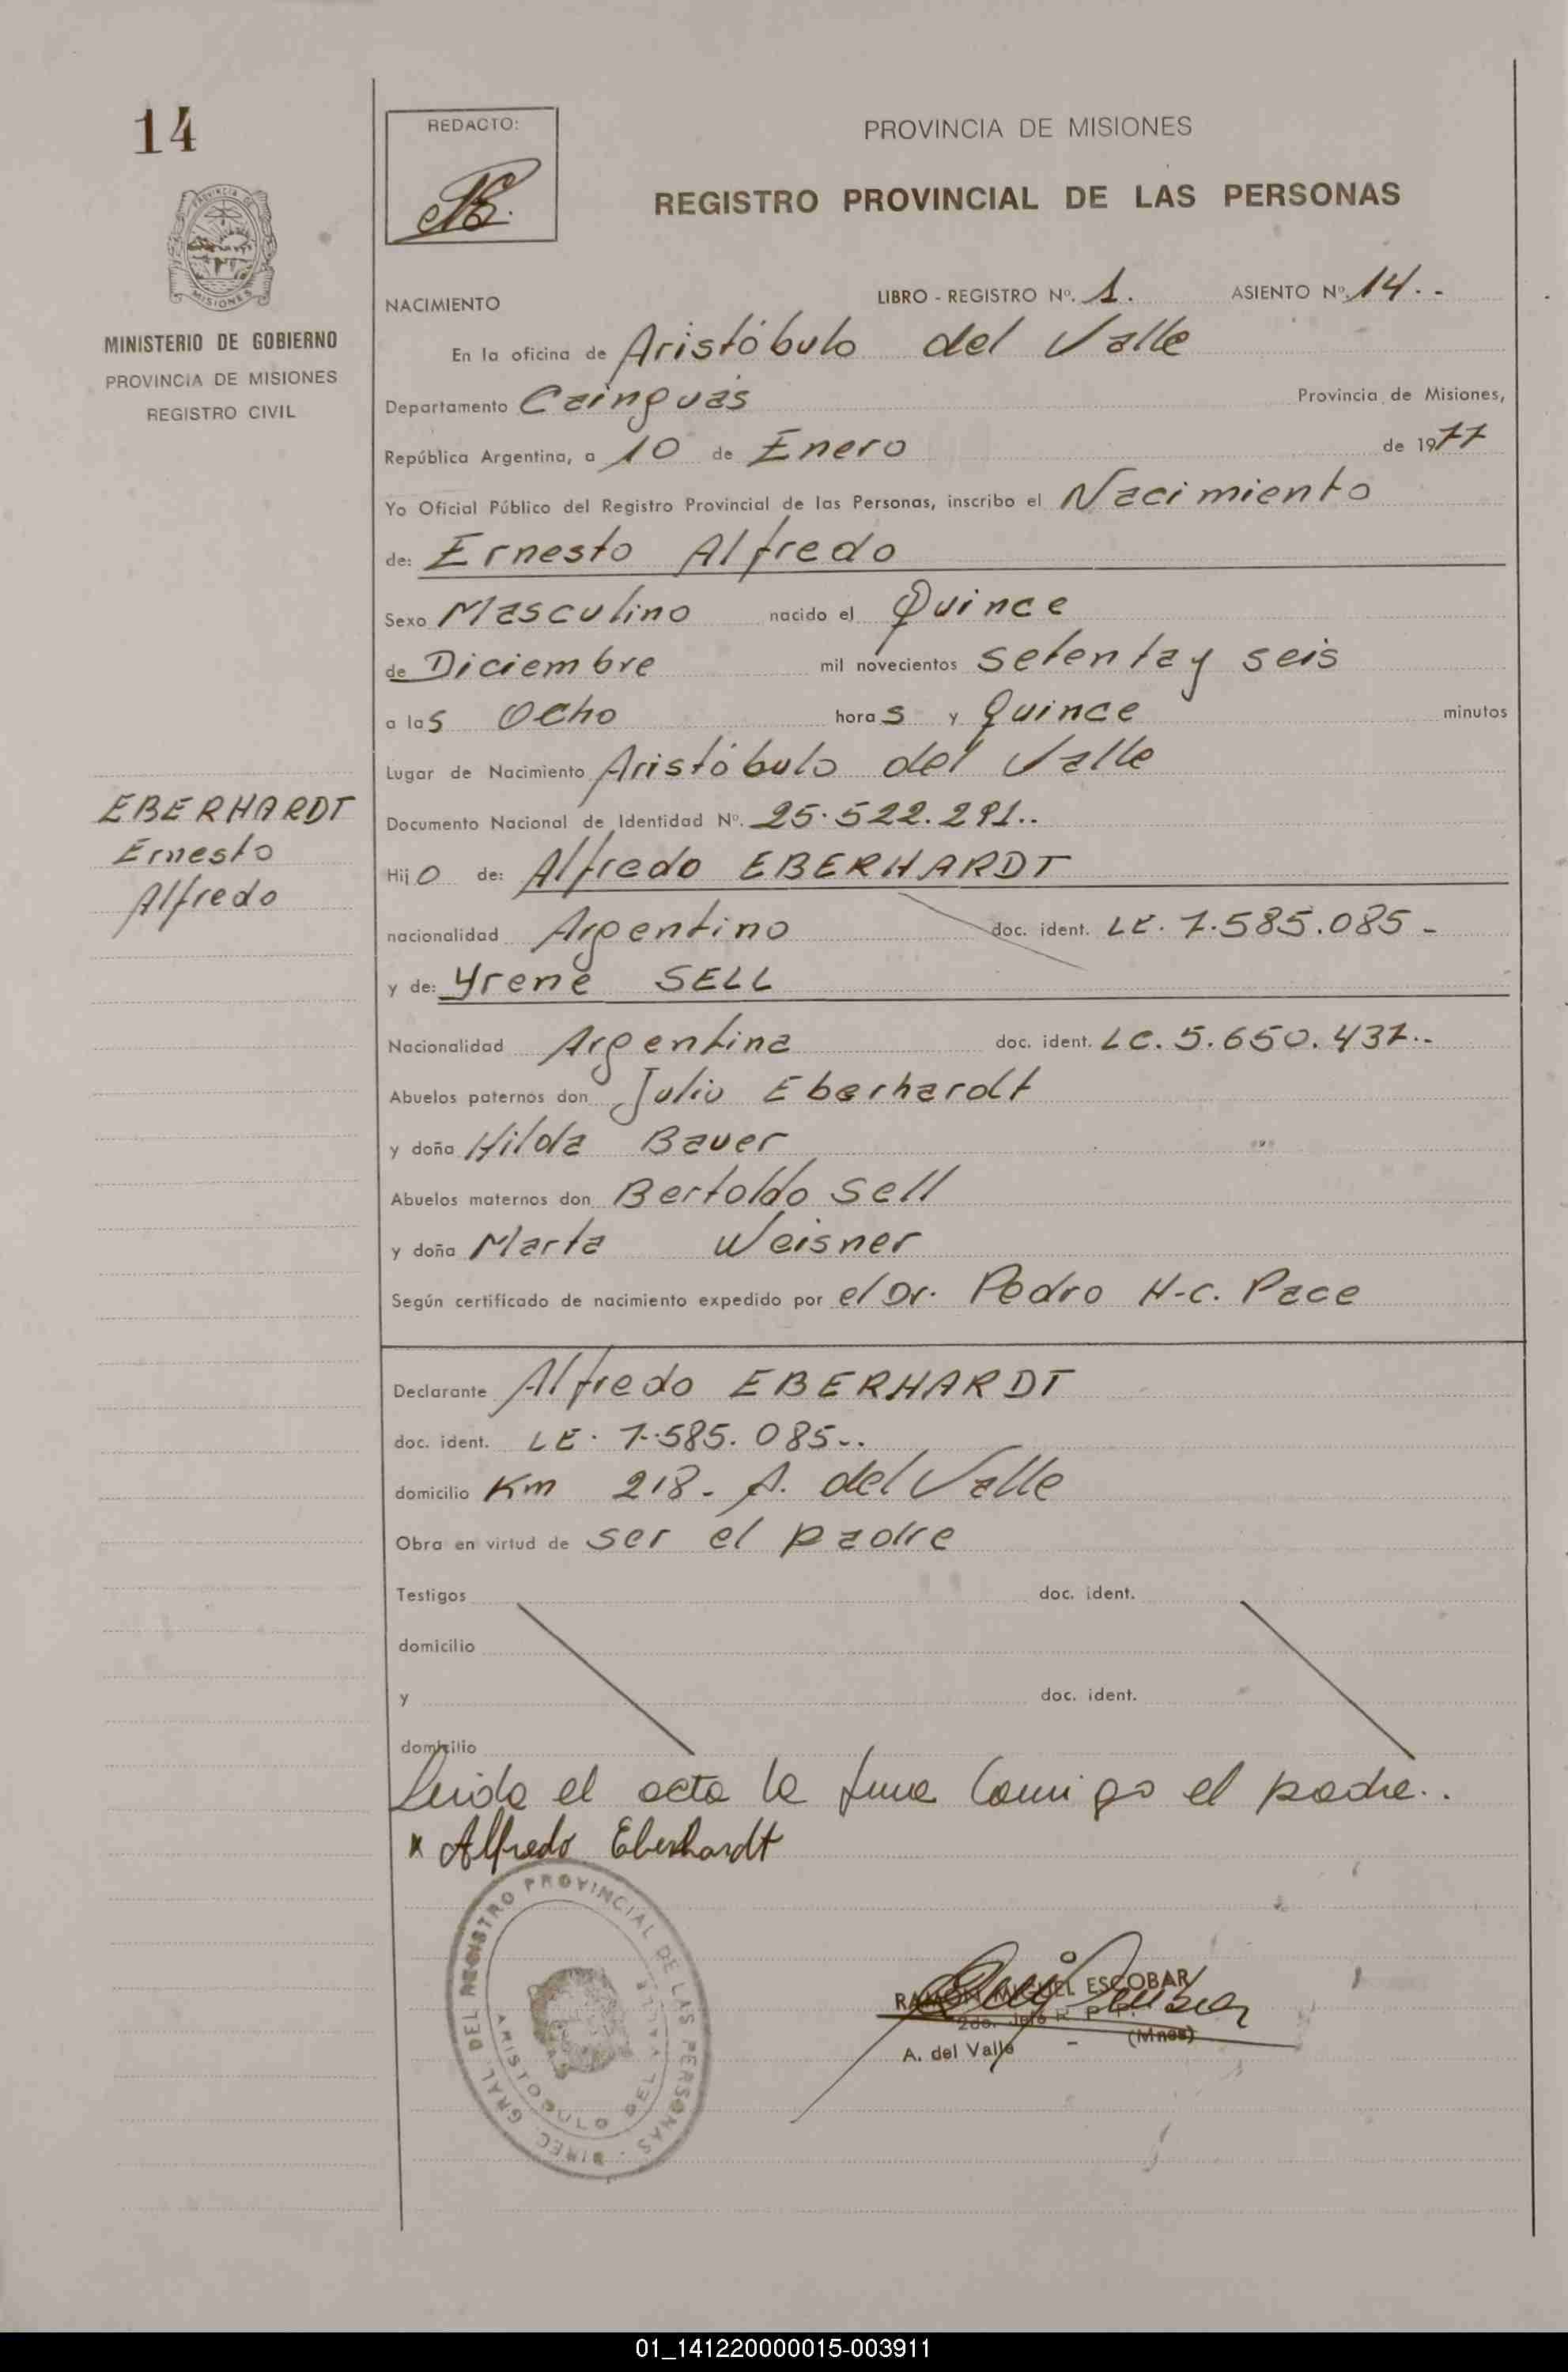 14
PROVINCIA DE MISIONES
MINISTERIO DE GOBIERNO
PROVINCIA DE MISIONES
REGISTRO CIVIL
EBERHARDT
Ernesto
Alfredo
REDACTO:
PROVINCIA DE MISIONES
REGISTRO PROVINCIAL DE LAS PERSONAS
NACIMIENTO LIBRO - REGISTRO Nº. 1. ASIENTO Nº. 14..
En la oficina de Aristóbulo del Valle
Departamento Cainguás Provincia de Misiones,
República Argentina, a 10 de Enero de 1977
Yo Oficial Público del Registro Provincial de las Personas, inscribo el Nacimiento
de: Ernesto Alfredo
Sexo Masculino nacido el Quince
de Diciembre mil novecientos setenta y seis
a las Ocho horas y Quince minutos
Lugar de Nacimiento Aristóbulo del Valle
Documento Nacional de Identidad Nº. 25.522.291..
Hijo de: Alfredo EBERHARDT
nacionalidad Argentino doc. ident. LE. 7.585.085-
y de: Yrene SELL
Nacionalidad Argentina doc. ident. LC. 5.650.437..
Abuelos paternos don Julio Eberhardt
y doña Hilda Bauer
Abuelos maternos don Bertoldo Sell
y doña Marta Weisner
Según certificado de nacimiento expedido por el Dr. Pedro H.C. Pace
Declarante Alfredo EBERHARDT
doc. ident. LE. 7.585.085..
domicilio Km 218- A. del Valle
Obra en virtud de ser el padre
Testigos doc. ident.
domicilio
y doc. ident.
domicilio
Leida el acta la firma Comigo el padre..
x Alfredo Eberhardt
DIREC. GRAL. DEL REGISTRO PROVINCIAL DE LAS PERSONAS
ARISTOBULO DEL VALLE
RAMON MIGUEL ESCOBAR
2do. Jefe R. P. P.
A. del Valle - (Mnes)
01_141220000015-003911